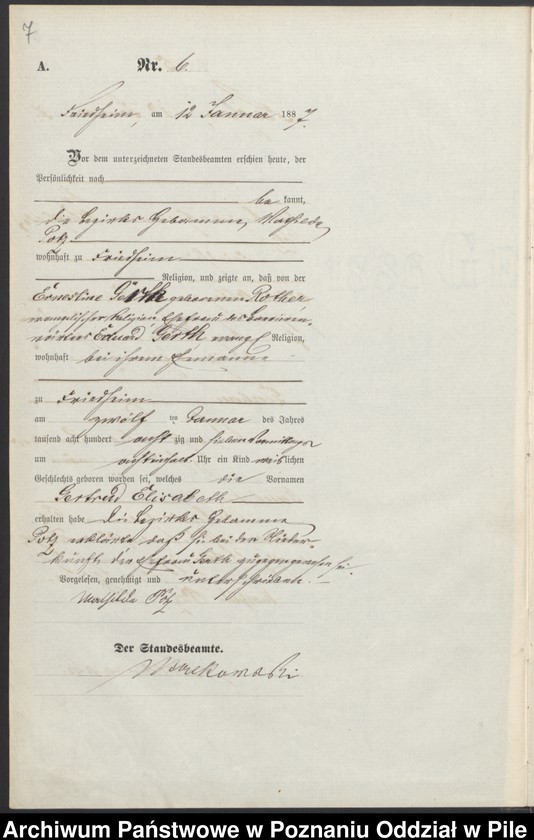 7
A. Nr. 6.
Friedheim, am 12 Januar 1887.
Vor dem unterzeichneten Standesbeamten erschien heute, der
Persönlichkeit nach
be kannt,
die Bezirks Hebamme, Mathilde
Potz
wohnhaft zu Friedheim
Religion, und zeigte an, daß von der
Ernestine Gerth geborenen Rother
evangelischer Religion Ehefrau des
Eduard Gerth evangl Religion,
wohnhaft bei ihrem Ehemanne
zu Friedheim
am zwölf ten Januar des Jahres
tausend acht hundert acht zig und sieben Vormittags
um acht einhalb Uhr ein Kind weiblichen
Geschlechts geboren worden sei, welches die Vornamen
Gertrud Elisabeth
erhalten habe. Die Bezirks Hebamme
Potz erklärte daß sie bei der Nieder-
kunft der Ehefrau Gerth zugegen gewesen sei.
Vorgelesen, genehmigt und unterschrieben.
Mathilde Potz
Der Standesbeamte.
Archiwum Państwowe w Poznaniu Oddział w Pile